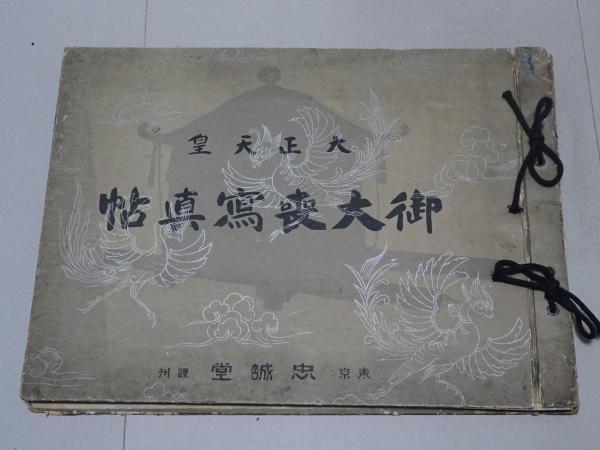 大正天皇
御大喪寫真帖
東京 忠誠堂 謹刋